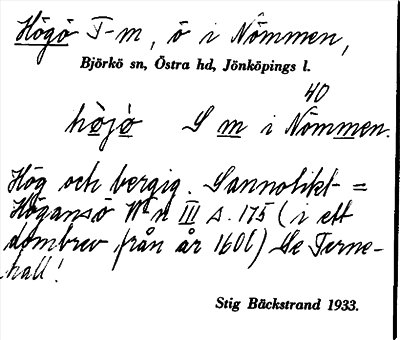 Högö T-m, ö i Nömmen,
Björkö sn, Östra hd, Jönköpings l.
40
hòjò S m i Nömmen.
Hög och bergig. Sannolikt =
Högansö Wn III s. 175 (i ett
dombrev från år 1606) Se Terne-
hall!
Stig Bäckstrand 1933.